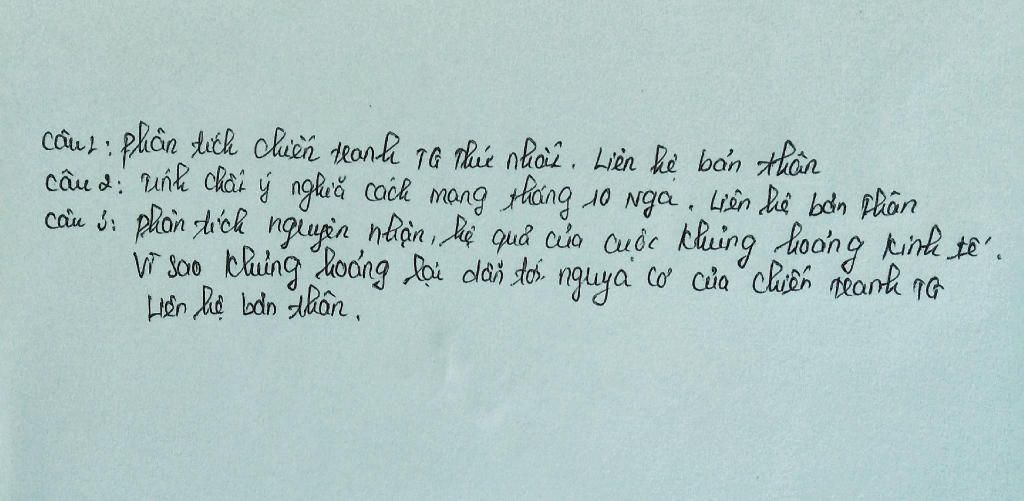 Câu 1: Phân tích chiến tranh TG Thứ nhất. Liên hệ bản thân
Câu 2: Tính chất ý nghĩa cách mạng tháng 10 Nga. Liên hệ bản thân
Câu 3: Phân tích nguyên nhân, hệ quả của cuộc khủng hoảng kinh tế.
Vì sao khủng hoảng lại dẫn tới nguy cơ của chiến tranh TG
Liên hệ bản thân.